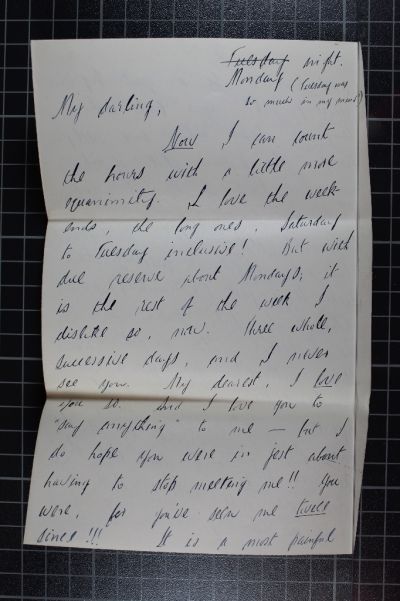 ~~Tuesday~~ night.
Monday (Tuesday was
so much in my mind)
My darling,
Now I can count
the hours with a little more
equanimity. I love the week-
ends, the long ones, Saturday
to Tuesday inclusive! But with
due reserve about Mondays, it
is the rest of the week I
dislike so, now. Three whole,
successive days, and I never
see you. My dearest, I love
you so. And I love you to
"say anything" to me — but I
do hope you were in jest about
having to stop meeting me!! You
were, for you've seen me twice
since!!! It is a most painful